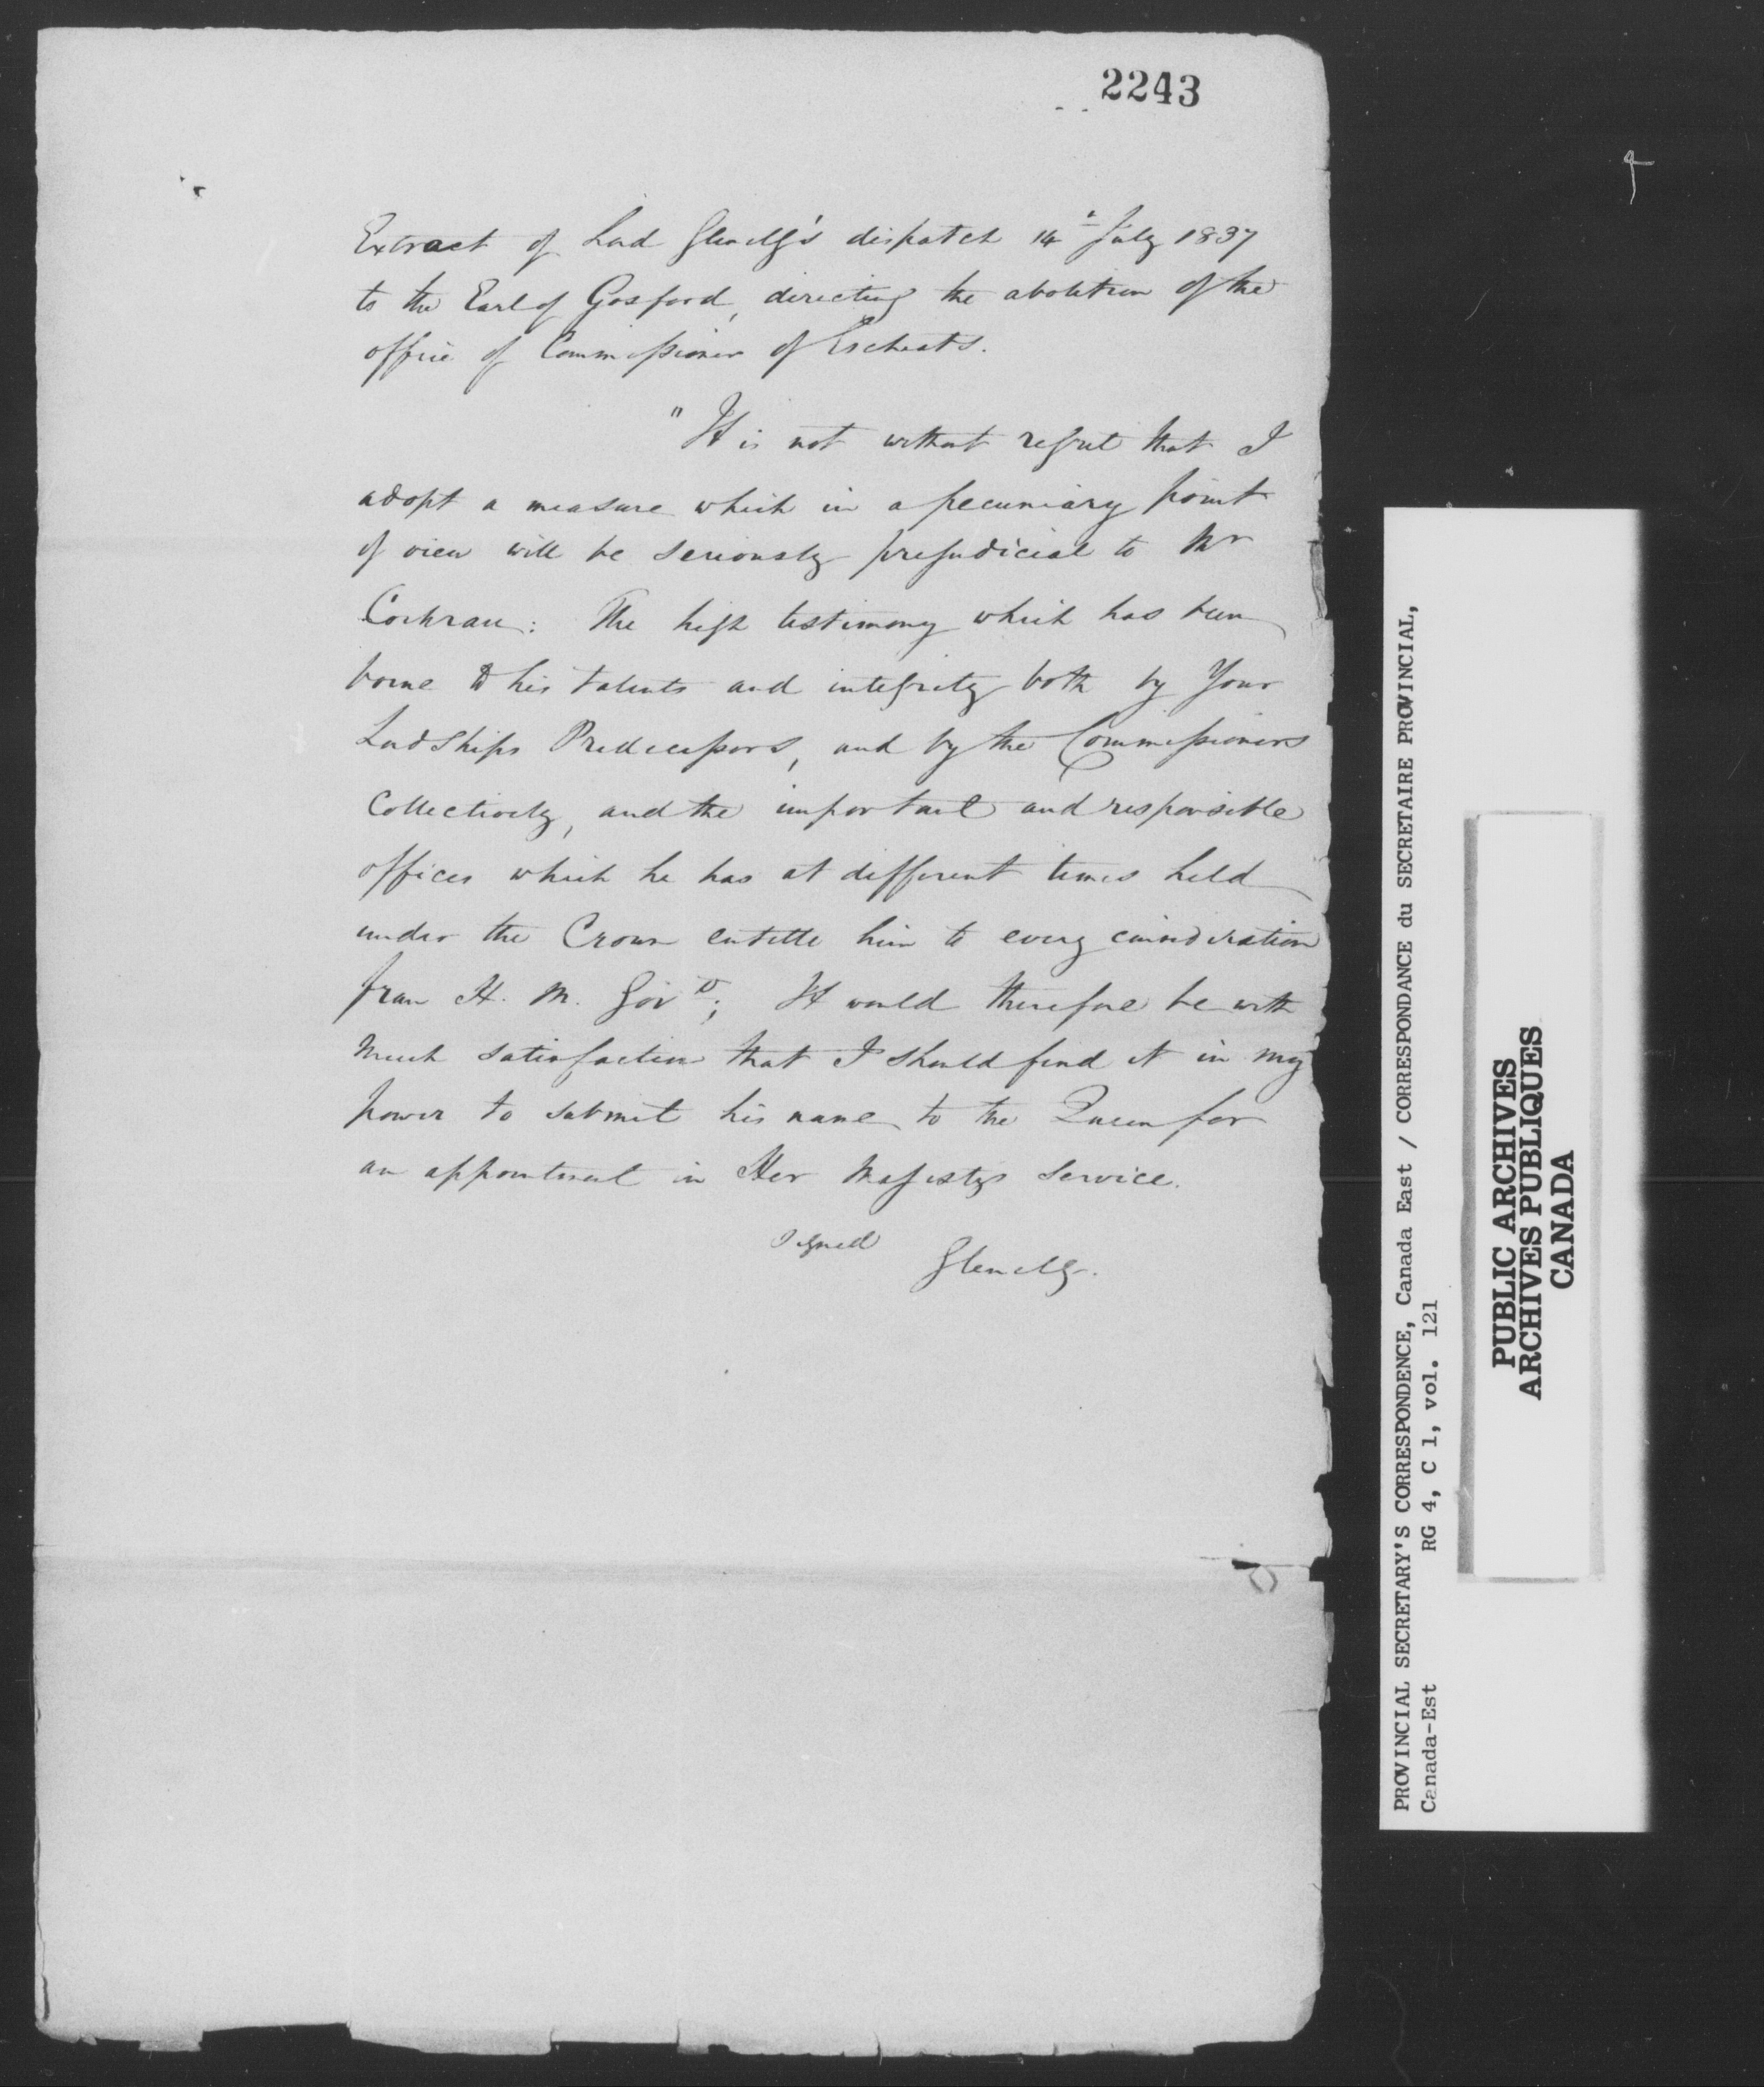 2243
Extract of Lord Glenelg's dispatch 14th July 1837
to the Earl of Gosford, directing the abolition of the
office of Commissioner of Escheats.
"It is not without regret that I
adopt a measure which in a pecuniary point
of view will be seriously prejudicial to Mr
Cochran: The high testimony which has been
borne to his talents and integrity both by Your
Lordships Predecessors, and by the Commissioners
Collectively, and the important and responsible
offices which he has at different times held
under the Crown entitle him to every consideration
from H. M. Govt; It would therefore be with
much satisfaction that I should find it in my
power to submit his name to the Queen for
an appointment in Her Majestys Service.
Signed
Glenelg.
PROVINCIAL SECRETARY'S CORRESPONDENCE, Canada East / CORRESPONDANCE du SECRETAIRE PROVINCIAL,
Canada-Est RG 4, C 1, vol. 121
PUBLIC ARCHIVES
ARCHIVES PUBLIQUES
CANADA